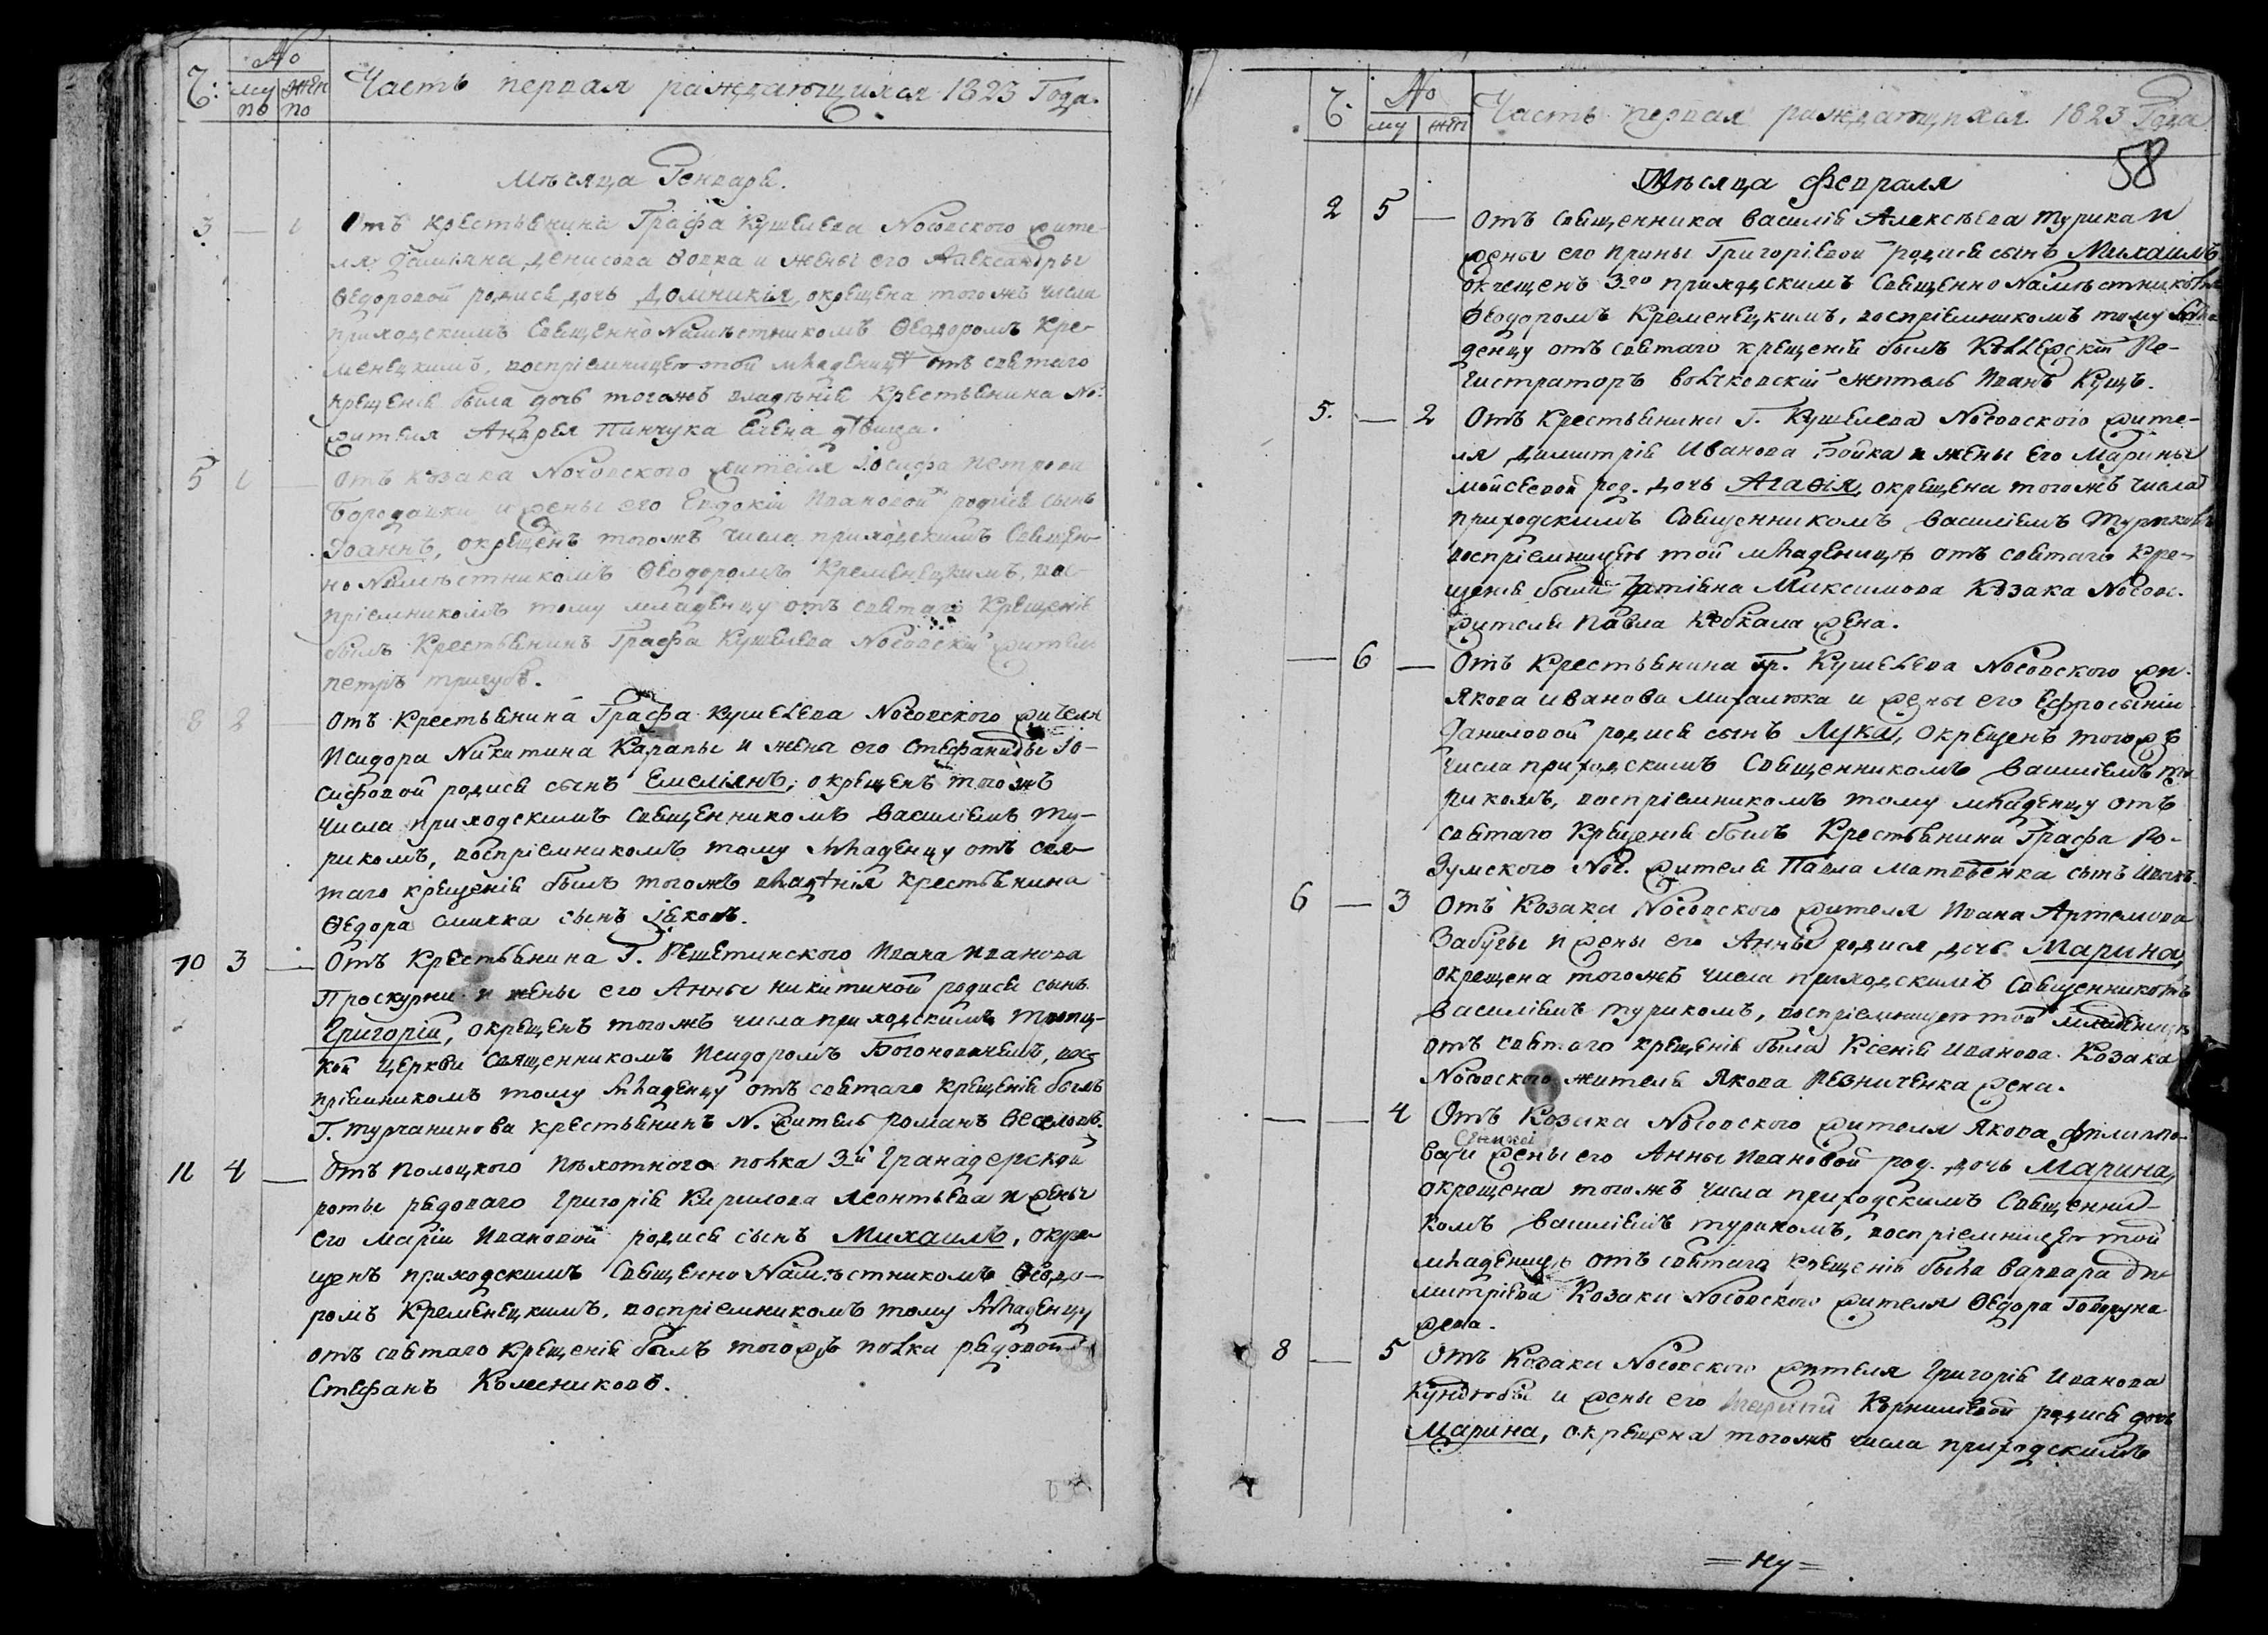 Ч: No
му по жен по
Часть первая раждающихся 1823 Года.
Мѣсяца Генваря.
3 — 1 Отъ крестьянина Графа Кушелева Носовского жите-
ля Даміяна Денисова Вовка и жены его Александры
Ѳедоровой родися дочь Домникія, окрещена тогожъ числа
приходскимъ Священно Намѣстникомъ Ѳеодоромъ Кре-
менецкимъ, воспріемницею той младеницѣ отъ святаго
крещенія была дочь тогожъ владѣнія крестьянина Но.
жителя Андрея Пинчука Елена дѣвица.
5 1 — Отъ козака Носовского жителя Іосифа Петрова
Бородавки и жены его Евдокіи Ивановой родися сынъ
Іоаннъ, окрещенъ тогожъ числа приходскимъ Священ-
но Намѣстникомъ Ѳеодоромъ Кременецкимъ, вос-
пріемникомъ тому младенцу отъ святаго Крещенія
былъ Крестьянинъ Графа Кушелева Носовскій житель
Петръ Тригубъ.
8 2 Отъ Крестьянина Графа Кушелева Носовского жителя
Исидора Никитина Карапы и жены его Стефаниды Іо-
сифовой родися сынъ Емеліянъ, окрещенъ тогожъ
числа приходскимъ Священникомъ Василіемъ Ту-
рикомъ, воспріемникомъ тому младенцу отъ свя-
таго крещенія былъ тогожъ владѣнія крестьянина
Ѳедора сынъ Іяковъ.
10 3 — Отъ Крестьянина Г. Решетинского Ивана Иванова
Проскурни и жены его Анны Никитиной родися сынъ
Григорій, окрещенъ тогожъ числа приходскимъ Троиц-
кой церкви Священникомъ Исидоромъ вос-
пріемникомъ тому младенцу отъ святаго крещенія былъ
Г. Турчанинова крестьянинъ N. житель Романъ
11 4 — Отъ Полоцкого пѣхотнаго полка 3-й Гранадерской
роты рядоваго Григорія Кирилова Леонтьева и жены
его Маріи Ивановой родися сынъ Михаилъ, окре-
щенъ приходскимъ Священно Намѣстникомъ Ѳеодо-
ромъ Кременецкимъ, воспріемникомъ тому младенцу
отъ святаго Крещенія былъ тогожъ полка рядовой
Стефанъ Колесниковъ.
Ч. No
му жен
Часть первая раждающихся 1823 Года
58
Мѣсяца Февраля
2 5 — Отъ Священника Василія Алексѣева Турика и
жены его Ирины Григоріевой родися сынъ Михаилъ
окрещенъ 3-го приходскимъ Священно Намѣстникомъ
Ѳеодоромъ Кременецкимъ, воспріемникомъ тому мла-
денцу отъ святаго крещенія былъ Коллежскій Ре-
гистраторъ житель Иванъ Кущъ.
5. — 2 Отъ Крестьянина Г. Кушелева Носовского жите-
ля Димитрія Иванова Бойка и жены его Марины
Мойсеевой род. дочь Агаѳія, окрещена тогожъ числа
приходскимъ Священникомъ Василіемъ Турикомъ
воспріемницею той младеницѣ отъ святаго Кре-
щенія была Татіяна Максимова Козака Носовс.
жителя Павла жена.
— 6 — Отъ Крестьянина Гр. Кушелева Носовского жи.
Якова Иванова Михалюка и жены его Ефросиніи
Даниловой родися сынъ Лука, окрещенъ тогожъ
числа приходскимъ Священникомъ Василіемъ Ту-
рикомъ, воспріемникомъ тому младенцу отъ
святаго Крещенія былъ Крестьянина Графа Ро-
зумского Нос. жителя Павла Матвѣенка сынъ Иванъ.
6 — 3 Отъ Козака Носовского жителя Ивана Артемова
Забугы и жены его Анны родися дочь Марина,
окрещена тогожъ числа приходскимъ Священникомъ
Василіемъ Турикомъ, воспріемницею той младеницѣ
отъ святаго крещенія была Ксенія Иванова Козака
Носовского жителя Якова Резниченка жена.
— — 4 Отъ Козака Носовского жителя Якова Филипо-
ва и жены его Анны Ивановой род. дочь Марина,
окрещена тогожъ числа приходскимъ Священни-
комъ Василіемъ Турикомъ, воспріемницею той
младеницѣ отъ святаго крещенія была Варвара Ди-
митріева Козака Носовского жителя Ѳедора Говоруна
жена.
8 — 5 Отъ Козака Носовского жителя Григорія Иванова
Кундюбы и жены его Корниліевой родися дочь
Марина, окрещена тогожъ числа приходскимъ